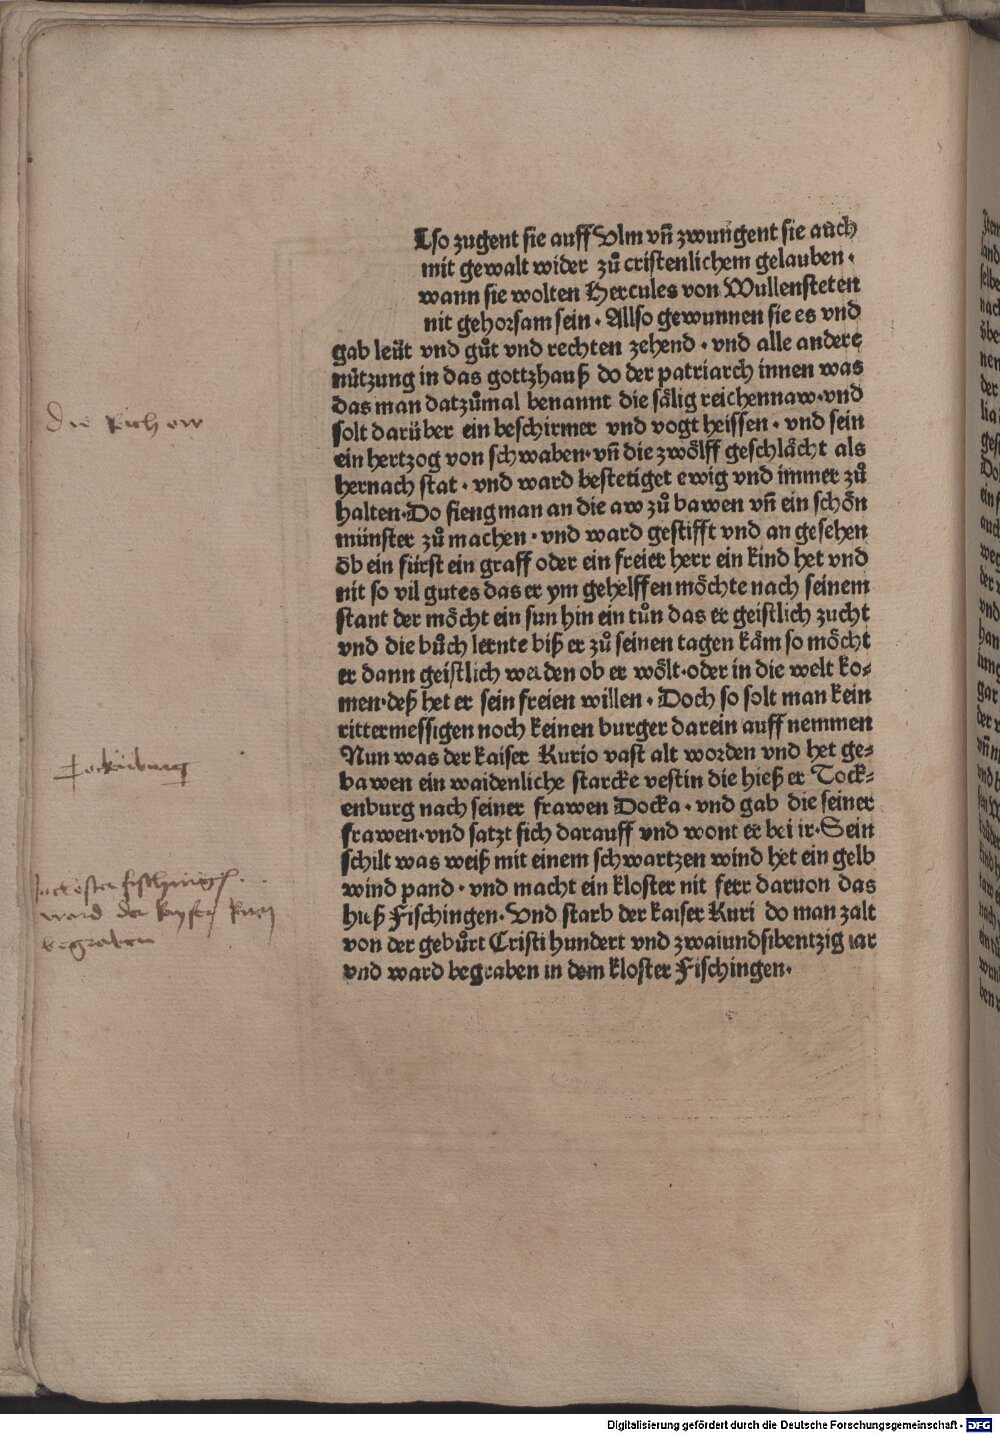 Also zugent sie auff Vlm vñ zwungent sie auch
mit gewalt wider zů cristenlichem gelauben ·
wann sie wolten Hercules von Wullensteten
nit gehorsam sein · Allso gewunnen sie es vnd
gab leüt vnd gůt vnd rechten zehend · vnd alle andere
nützung in das gottzhauß do der patriarch innen was
das man datzůmal benannt die sälig reichennaw·vnd
solt darüber ein beschirmer vnd vogt heissen · vnd sein
ein hertzog von schwaben·vñ die zwölff geschlächt als
hernach stat · vnd ward bestetiget ewig vnd immer zů
halten·Do fieng man an die aw zů bawen vñ ein schön
münster zů machen · vnd ward gestifft vnd an gesehen
öb ein fürst ein graff oder ein freier herr ein kind het vnd
nit so vil gutes das er ym gehelffen möchte nach seinem
stant der möcht ein sun hin ein tůn das er geistlich zucht
vnd die bůch lernte biß er zů seinen tagen käm so möcht
er dann geistlich werden ob er wölt·oder in die welt ko⸗
men·deß het er sein freien willen · Doch so solt man kein
rittermessigen noch keinen burger darein auff nemmen
Nun was der kaiser Kurio vast alt worden vnd het ge⸗
bawen ein waidenliche starcke vestin die hieß er Tock⸗
enburg nach seiner frawen Docka · vnd gab die seiner
frawen·vnd satzt sich darauff vnd wont er bei ir·Sein
schilt was weiß mit einem schwartzen wind het ein gelb
wind pand · vnd macht ein kloster nit ferr daruon das
hieß Fischingen·Vnd starb der kaiser Kuri do man zalt
von der gebůrt Cristi hundert vnd zwaiundsibentzig iar
vnd ward begraben in dem kloster Fischingen·
die Richow
Tockinburg
In closter fischingen
ward der keyser kurio
begraben
Digitalisierung gefördert durch die Deutsche Forschungsgemeinschaft - DFG